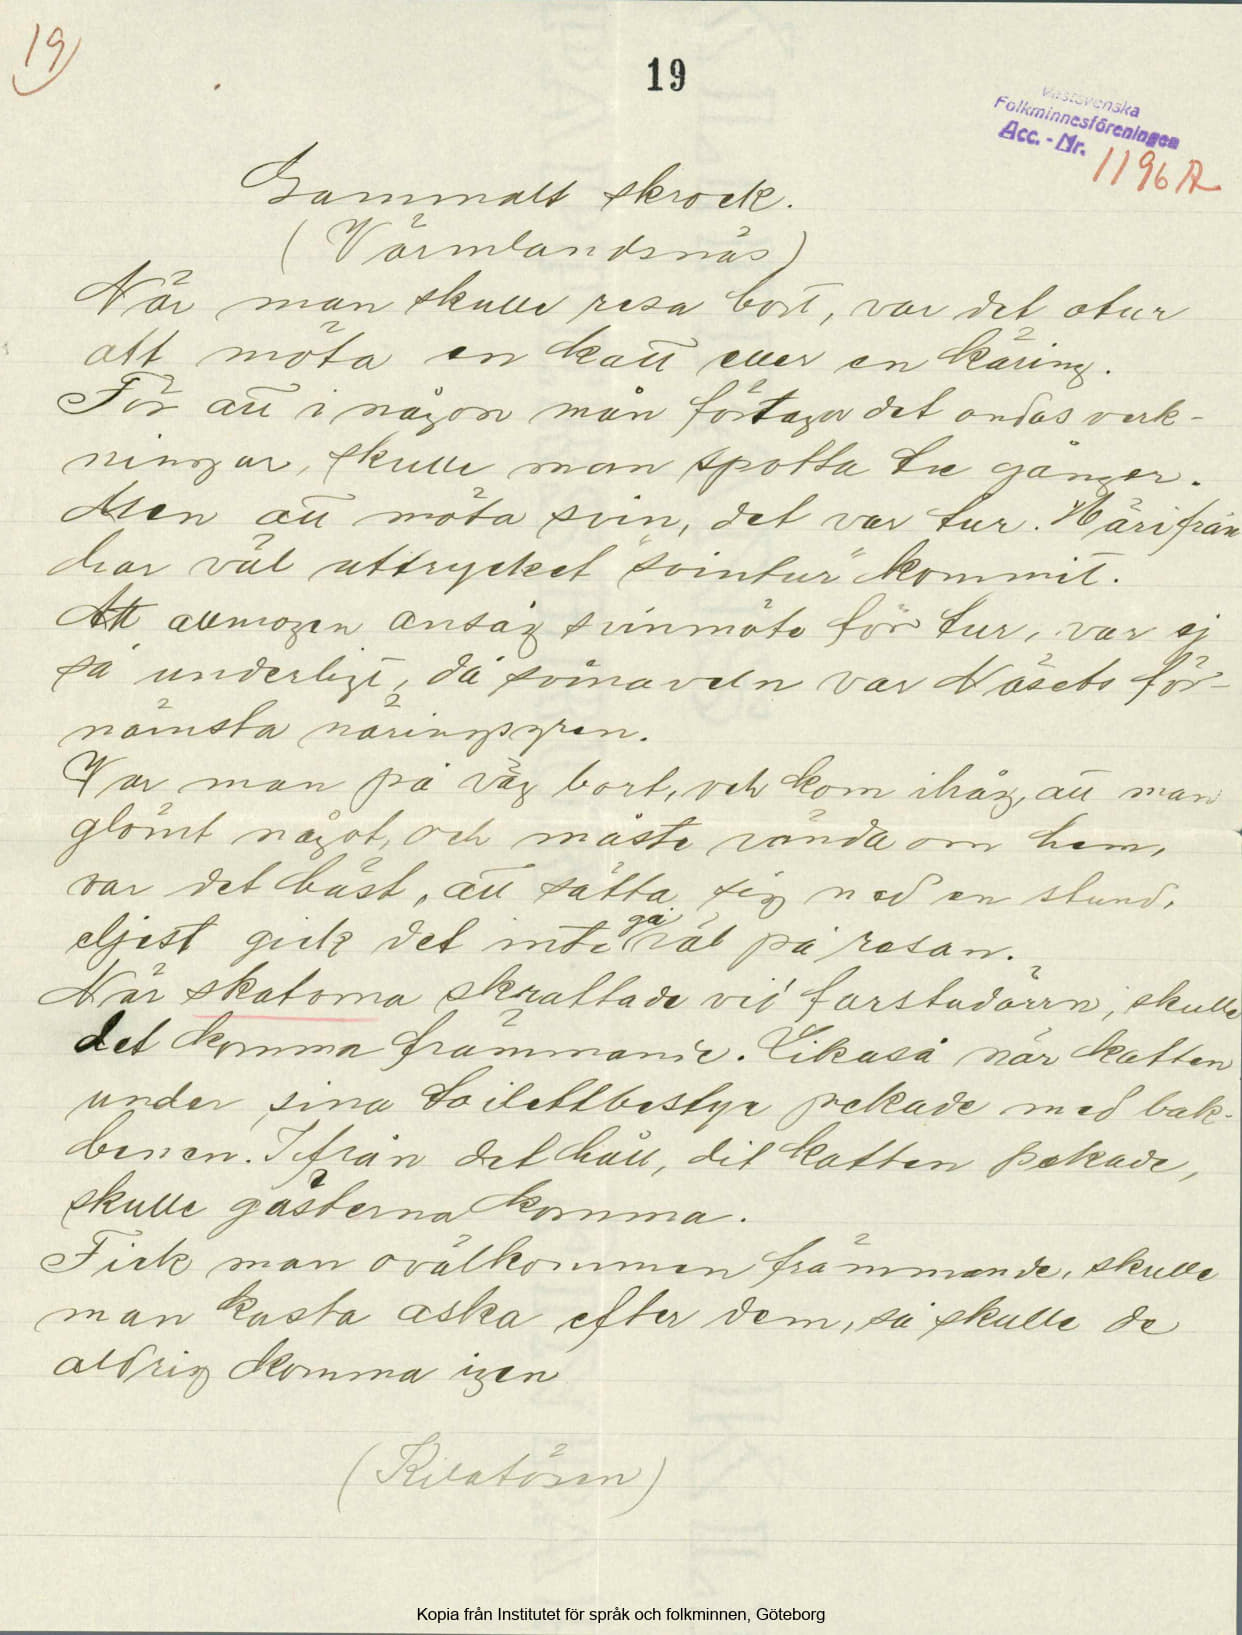 19
19
Västsvenska
Folkminnesföreningen
Acc. - Nr. 1196 A
Gammalt skrock.
(Värmlandsnäs)
När man skulle resa bort, var det otur
att möta en katt eller en käring.
För att i någon mån förtaga det ondas verk-
ningar, skulle man spotta tre gånger.
Men att möta svin, det var tur. Härifrån
har väl uttrycket "svintur" kommit.
Att allmogen ansåg svinmöte för tur, var ej
så underligt, då svinaveln var Näsets för-
nämsta näringsgren.
Var man på väg bort, och kom ihåg, att man
glömt något, och måste vända om hem,
var det bäst, att sätta sig ned en stund,
eljest gick det inte väl på resan.
När skatorna skrattade vid farstudörrn, skulle
det komma främmande. Likaså när katten
under sina toilettbestyr pekade med bak-
benen. Ifrån det håll, dit katten pekade,
skulle gästerna komma.
Fick man ovälkommen främmande, skulle
man kasta aska efter dem, så skulle de
aldrig komma igen
(Kilatösen)
Kopia från Institutet för språk och folkminnen, Göteborg